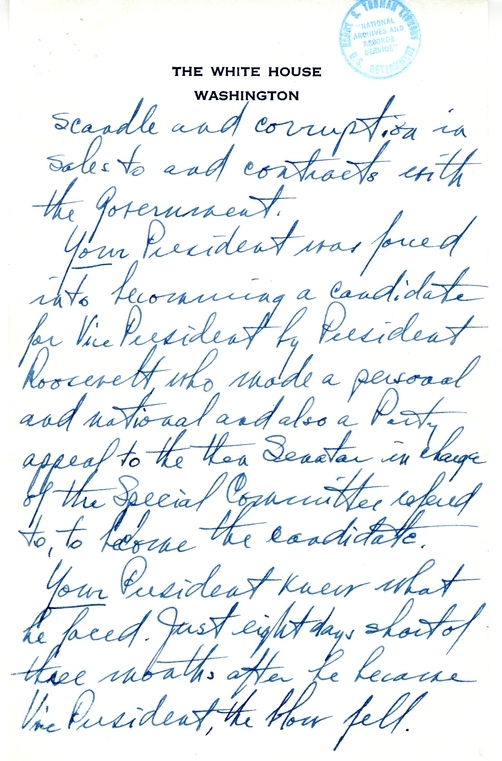 HARRY S. TRUMAN LIBRARY
"NATIONAL
ARCHIVES AND
RECORDS
SERVICE"
U.S. GOVERNMENT
THE WHITE HOUSE
WASHINGTON
scandle and corruption in
sales to and contracts with
the Government.
Your President was forced
into becomming a candidate
for Vice President by President
Roosevelt, who made a personal
and national and also a Party
appeal to the then Senator in charge
of the Special Committee refered
to, to become the candidate.
Your President knew what
he faced. Just eight days short of
three months after he became
Vice President, the blow fell.